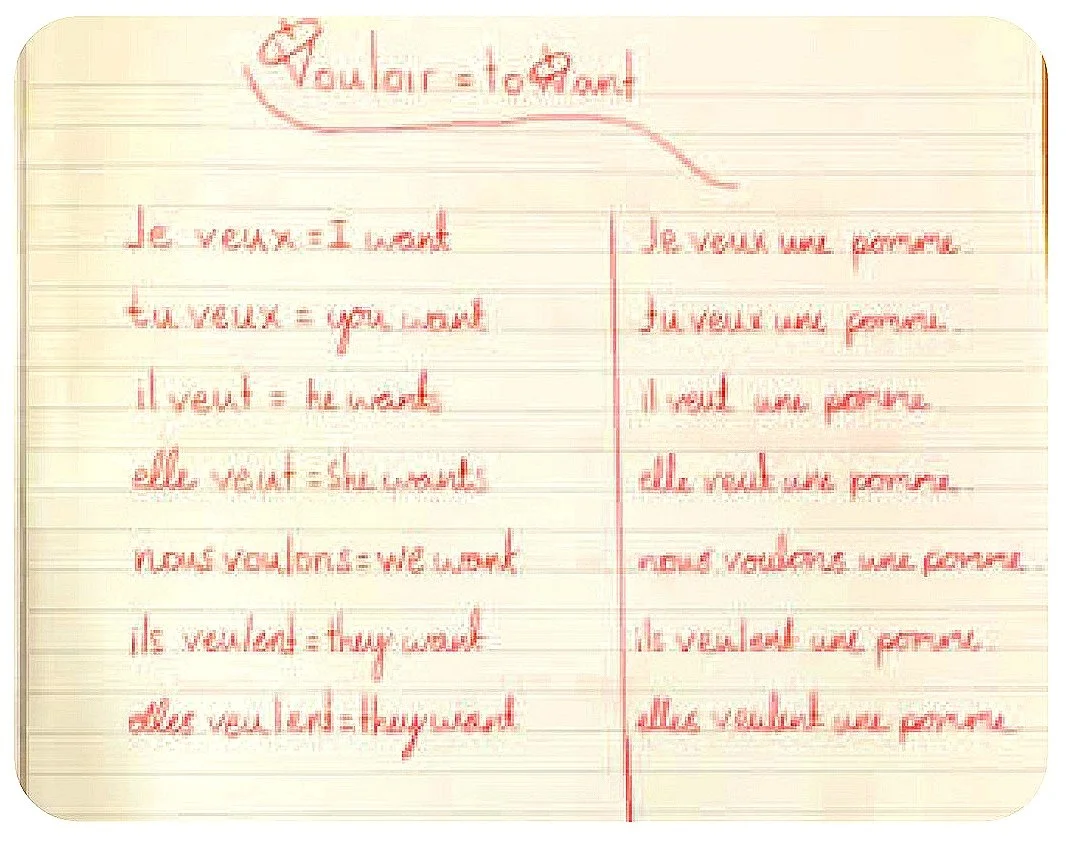 Vouloir = to want
Je veux = I want
Je veux une pomme.
tu veux = you want
tu veux une pomme.
il veut = he wants
il veut une pomme.
elle veut = she wants
elle veut une pomme.
nous voulons = we want
nous voulons une pomme.
ils veulent = they want
ils veulent une pomme.
elles veulent = they want
elles veulent une pomme.